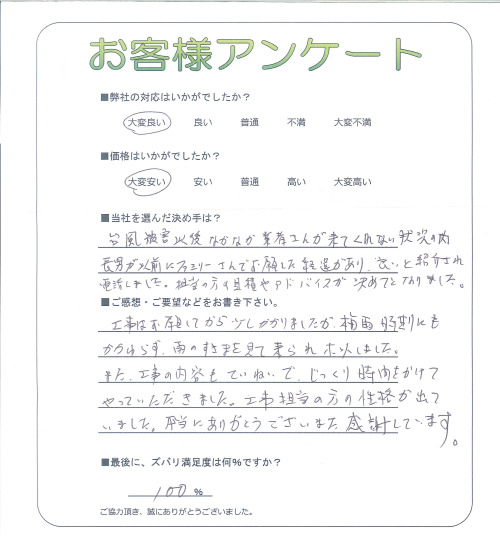 お客様アンケート
■弊社の対応はいかがでしたか？
大変良い 良い 普通 不満 大変不満
■価格はいかがでしたか？
大変安い 安い 普通 高い 大変高い
■当社を選んだ決め手は？
台風被害以後なかなか業者さんが来てくれない状況の内
長男が以前にファミリーさんでお願した経過があり、良いと紹介され
電話しました。担当の方の見積やアドバイスが決めてとなりました。
■ご感想・ご要望などをお書き下さい。
工事はお願してから少しかかりましたが、梅雨時期にも
かかわらず、雨のすきまを見て来られホッしました。
また、工事の内容もていねいで、じっくり時間をかけて
やっていただきました。工事担当の方の性格が出て
いました。本当にありがとうございました 感謝しています。
■最後に、ズバリ満足度は何%ですか？
100 %
ご協力頂き、誠にありがとうございました。